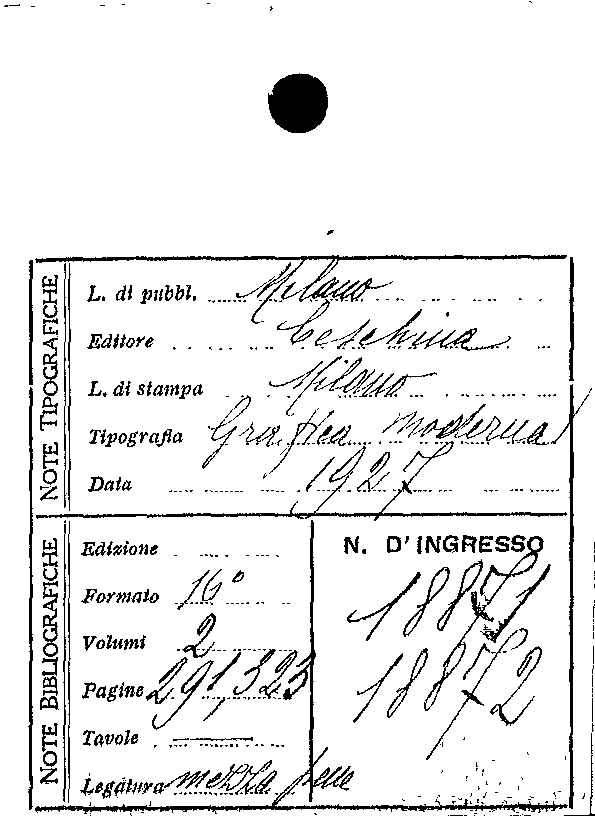 NOTE TIPOGRAFICHE
L. di pubbl. Milano
Editore Ceschina
L. di stampa Milano
Tipografia Grafica moderna
Data 1927
NOTE BIBLIOGRAFICHE
Edizione
Formato 16°
Volumi 2
Pagine 291, 323
Tavole —
Legatura mezza pelle
N. D'INGRESSO
18871
18872